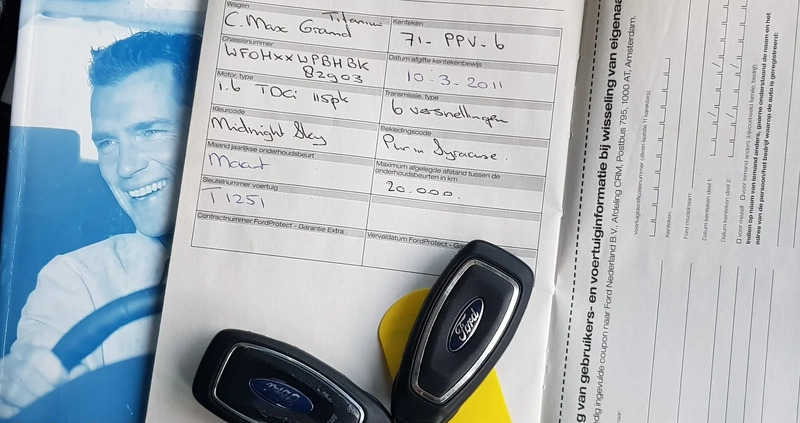 Wagen
C. Max Grand Titanium
Kenteken
71-PPV-6
Chassisnummer
WFOHXXWPBHBK
82903
Datum afgifte kentekenbewijs
10-3-2011
Motor, type
1.6 TDCi 115pk
Transmissie, type
6 versnellingen
Kleurcode
Midnight Sky
Bekledingscode
Maand jaarlijkse onderhoudsbeurt
Maart
Maximum afgelegde afstand tussen de
onderhoudsbeurten in km
20.000.
Sleutelnummer voertuig
T1251
Contractnummer FordProtect - Garantie Extra
Vervaldatum FordProtect - Ga
Ford
Ford
g van gebruikers- en voertuiginformatie bij wisseling van eigenaa
dig ingevulde coupon naar Ford Nederland B.V., Afdeling CRM, Postbus 795, 1000 AT, Amsterdam.
Voertuigidentificatienummer (alleen laatste 11 karakters):
Kenteken:
Ford modelnaam:
Datum kenteken deel 1:
Datum kenteken deel 2:
voor mezelf voor iemand anders (bijvoorbeeld familie, bedrijf)
Indien op naam van iemand anders, gaarne onderstaand de naam en het
adres van de persoon/het bedrijf waarop de auto is geregistreerd: